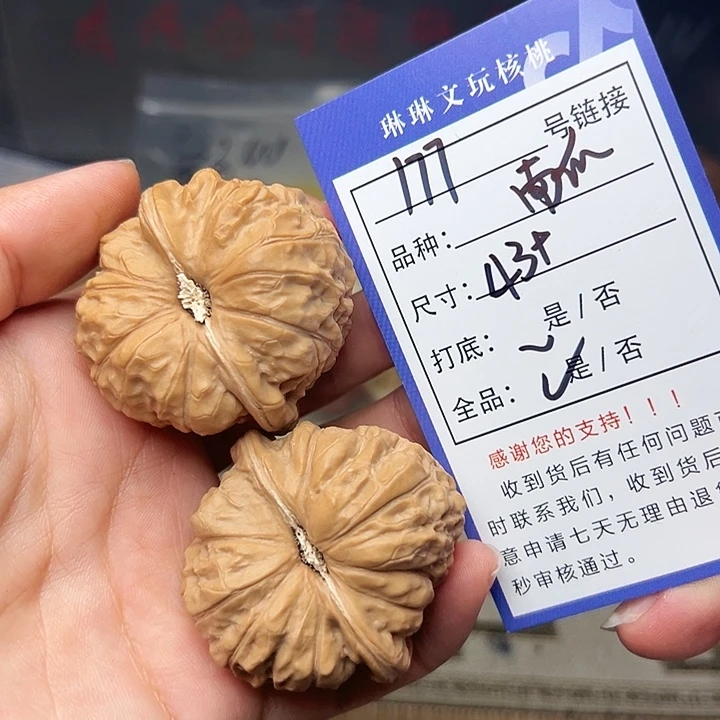 琳琳文玩核桃
177 号链接
品种：南瓜
尺寸：43+
打底： 是/否
全品： 是/否
感谢您的支持！！！
收到货后有任何问题
时联系我们，收到货后
意申请七天无理由退
秒审核通过。